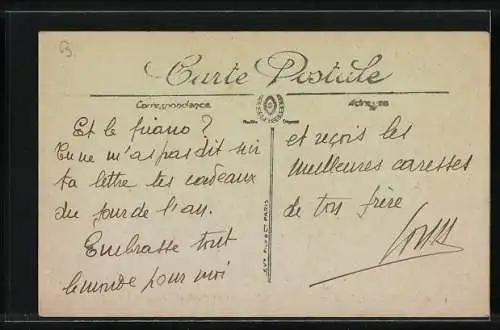 B
Carte Postale
Correspondance
Adresse
Et le piano ?
Tu ne m'as pas dit sur
ta lettre tes cadeaux
du jour de l'an.
Embrasse tout
le monde pour moi
et reçois les
meilleures caresses
de ton frère
PARIS